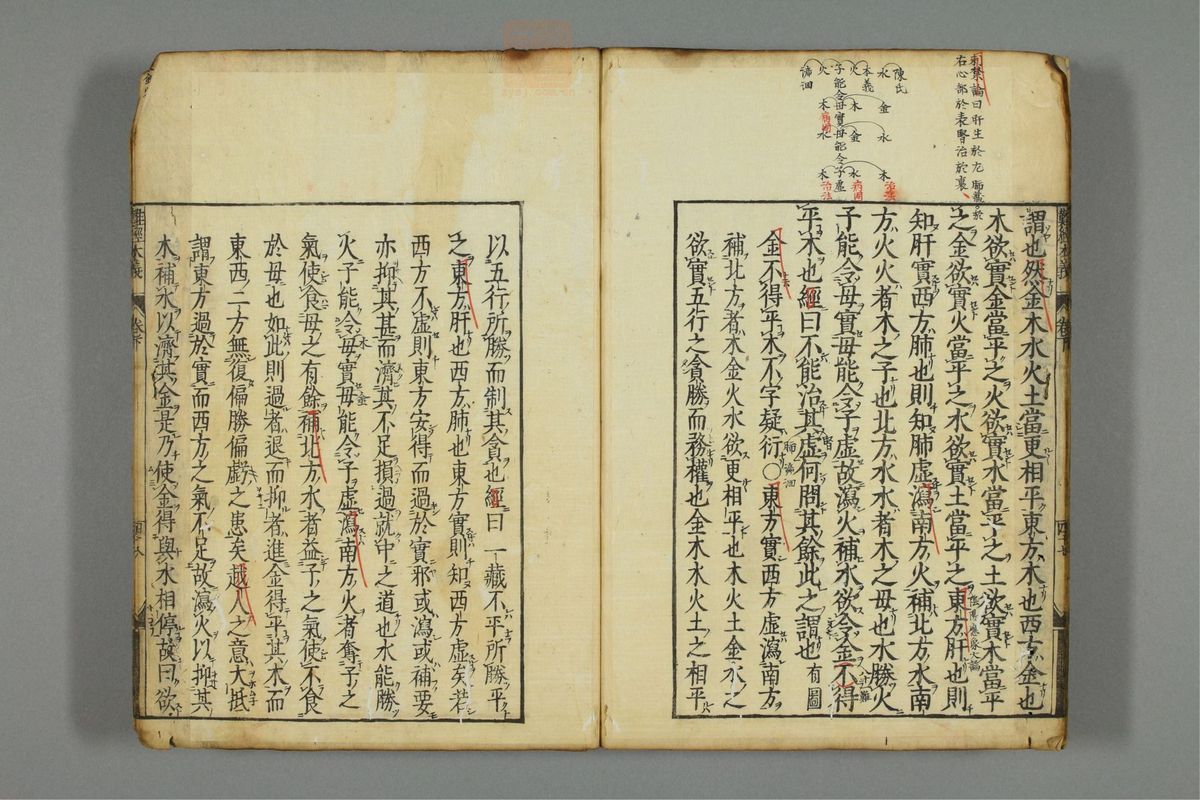 刺禁論曰肝生於左肺藏於
右心部於表腎治於裏
陳氏
本義
諦洄
子能令母實母能令子虛
病因
治法
謂也然金木水火土當更相平東方木也西方金也
木欲實金當平之火欲實水當平之土欲實木當平
之金欲實火當平之水欲實土當平之東方肝也則
知肝實西方肺也則知肺虛瀉南方火補北方水南
方火火者木之子也北方水水者木之母也水勝火
子能令母實母能令子虛故瀉火補水欲令金不得
平木也經曰不能治其虛何問其餘此之謂也 有圖
金不得平木不字疑衍○東方實西方虛瀉南方
補北方者木金火水欲更相平也木火土金水之
欲實五行之貪勝而務權也金木水火土之相平
難經本義
卷下
以五行所勝而制其貪也經曰一藏不平所勝平
之東方肝也西方肺也東方實則知西方虛矣若
西方不虛則東方安得而過於實邪或瀉或補要
亦抑其甚而濟其不足損過就中之道也水能勝
火子能令母實母能令子虛瀉南方火者奪子之
氣使食母之有餘補北方水者益子之氣使不食
於母也如此則過者退而抑者進金得平其木而
東西二方無復偏勝偏虧之患矣越人之意大抵
謂東方過於實而西方之氣不足故瀉火以抑其
木補水以濟其金是乃使金得與木相停故曰欲
難經本義
卷下